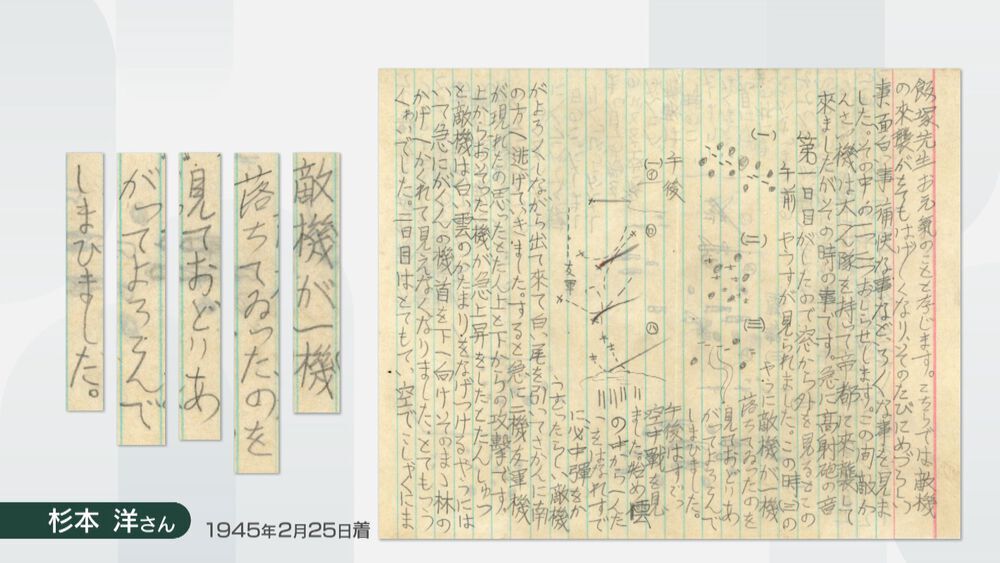 敵機が一機
落ちてゐったのを
見ておどりあ
がってよろこんで
しまひました。
杉本 洋さん
1945年2月25日着
飯塚先生お元氣のことと存じます。こちらでは敵機
の來襲がとてもはげしくなり、そのたびにめづらしい
事面白い事、痛快な事などいろいろな事を見ま
した。その中の一つ二つおしらせします。この間、敵か
機は大へん隊を持って帝都に來襲して
來ましたがその時の事です。急に高射砲の音
第一日目
がしたので窓から外を見るとこの
午前
やうすが見られました。この時(三)の
(一)
(二)
(三)
やうに敵機が一機
落ちてゐったのを
見ておどりあ
がってよろこんで
しまひました。
午後
(一)
イ
ロ
ハ
友軍
午後はすごい
空中戦を見
ました。始め雲
の中から
に必中弾を
うたったらしい、敵機
がよろよろしながら出て來て白い尾を引いてさかんに南
の方へ逃げていきました。すると急に二機友軍機
が現れたと思ったとたん上と下からの攻撃です。
上からおそった一機が急上昇をしたとたん、しゅっ
と敵機は白い雲のかたまりをなげつけるやうには
いて急にがくんの機首を下へ向けそのまま林の
かげへかくれて見えなくなりました。とてももつ
くわいでした。二日目はとてもていい空で